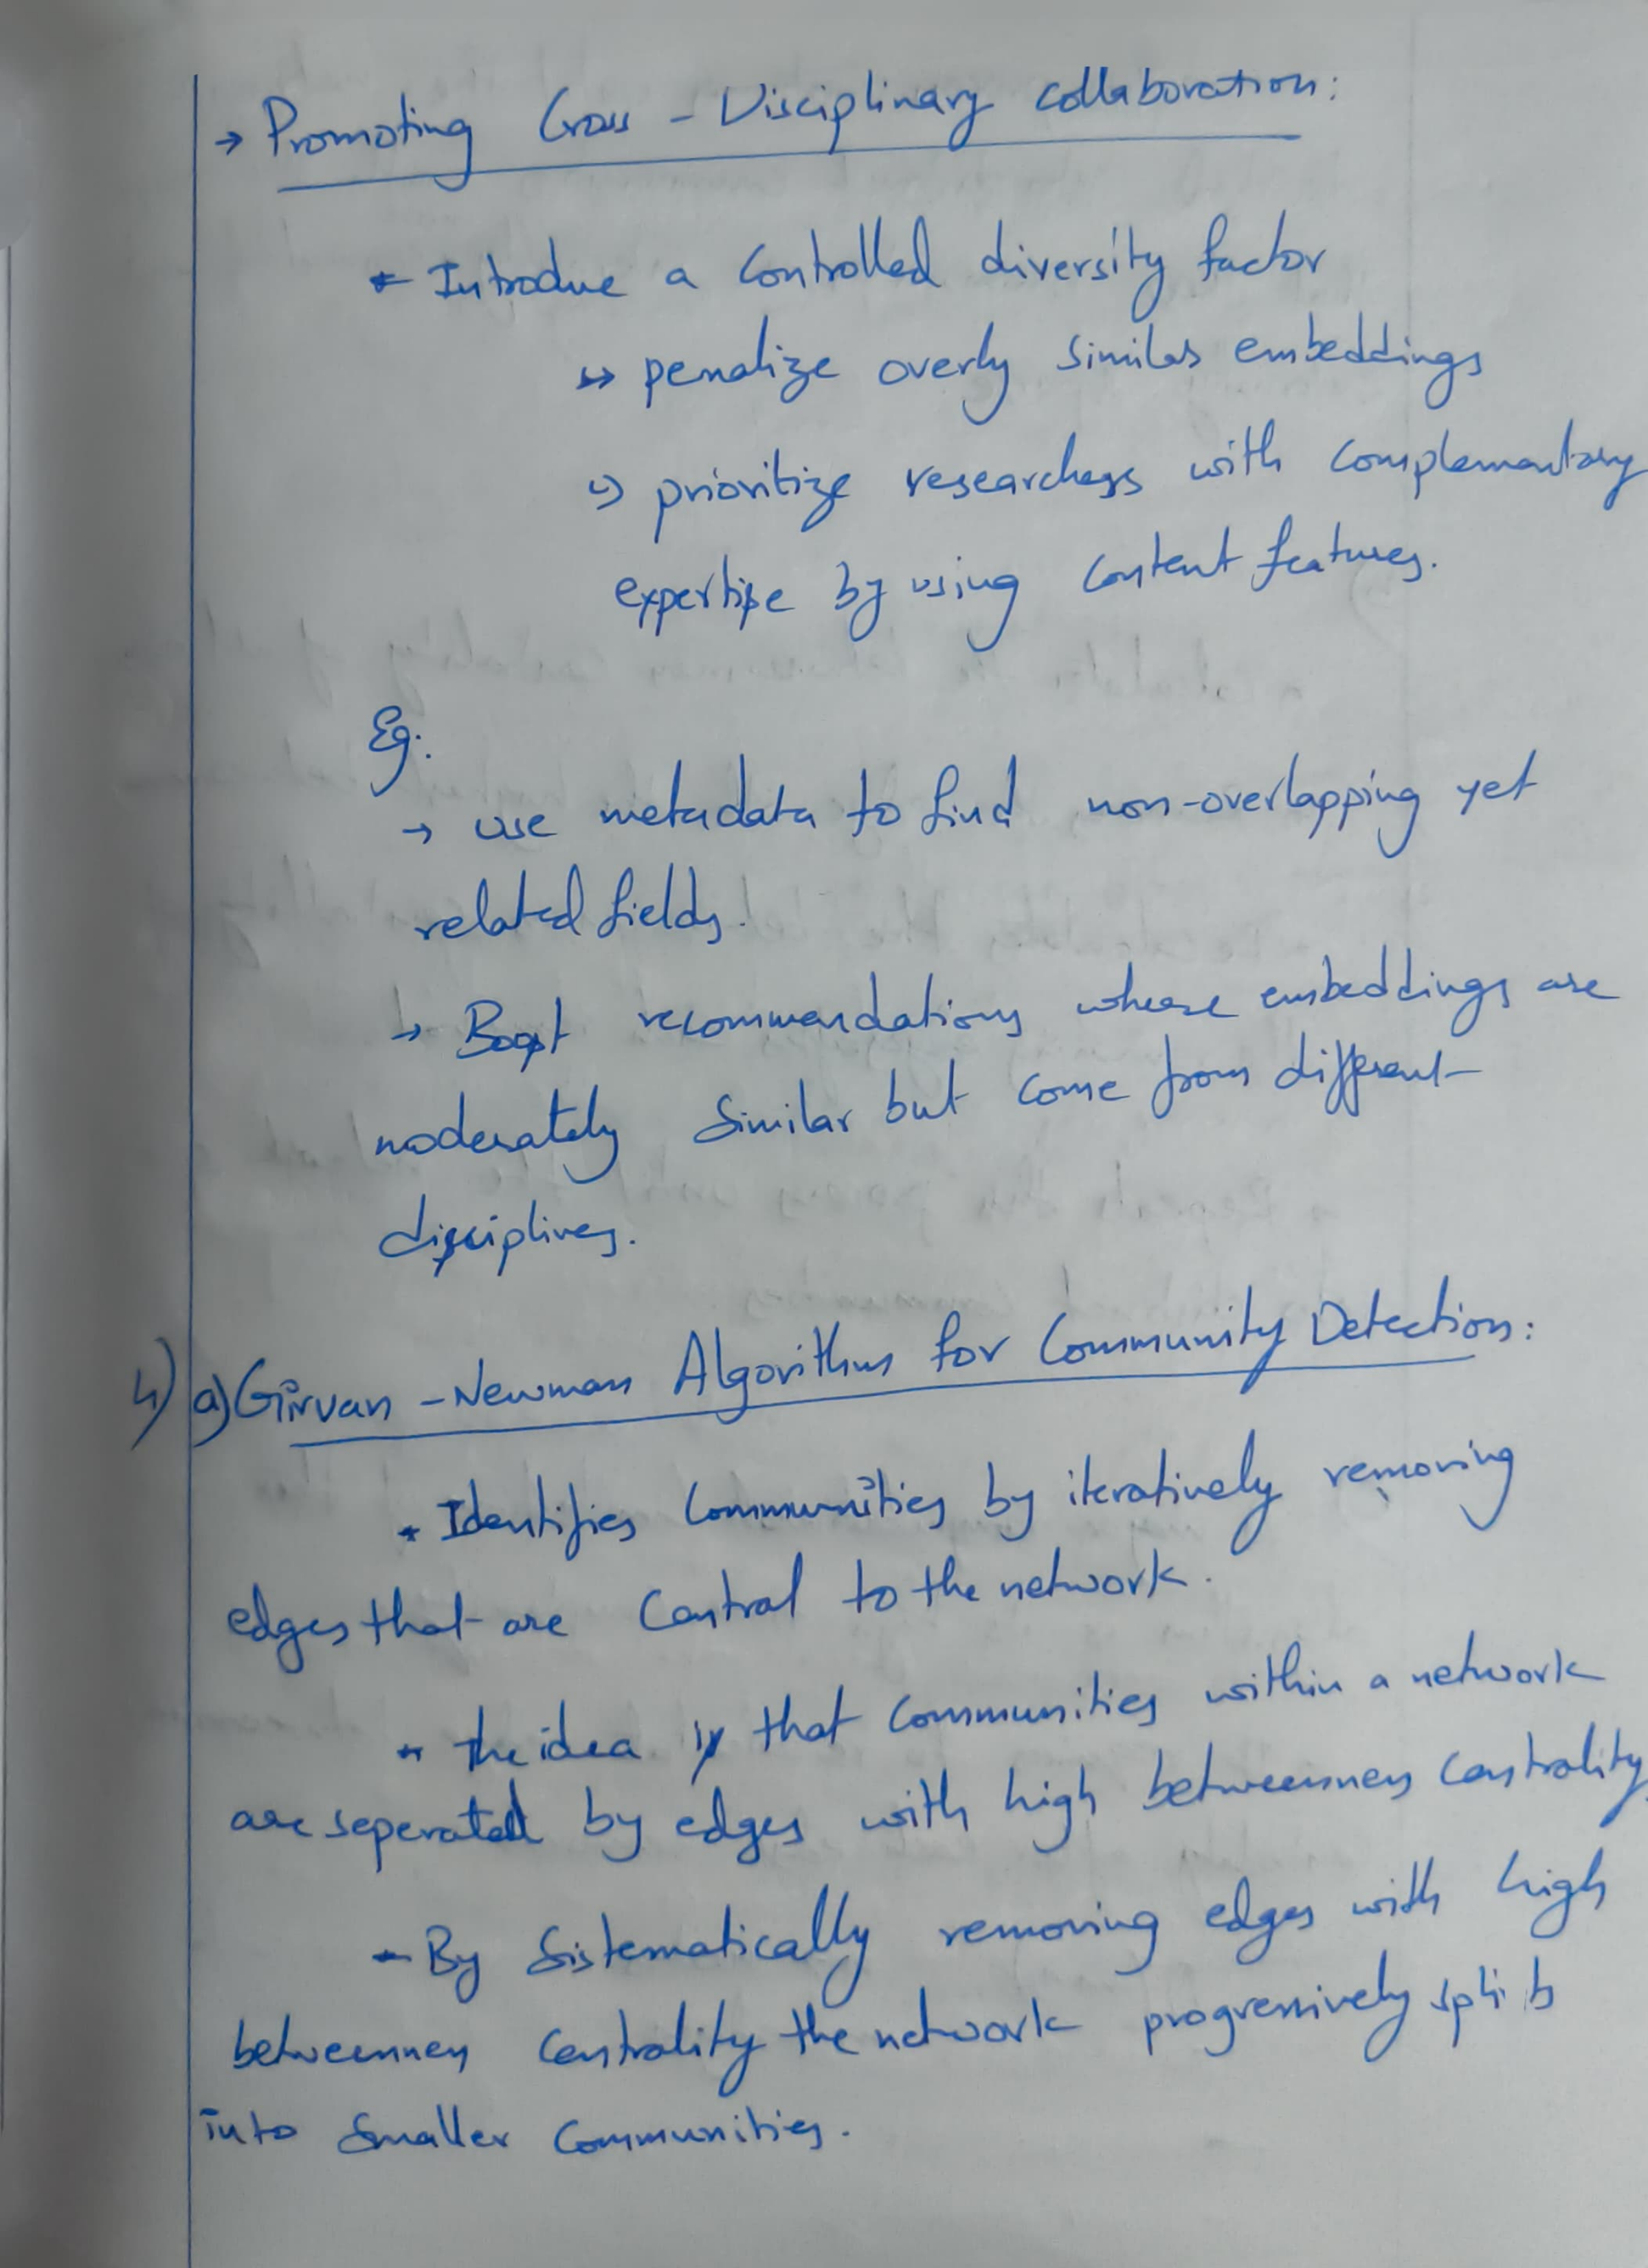 → Promoting Cross - Disciplinary collaboration:
* Introduce a controlled diversity factor
↳ penalize overly similar embeddings
↳ prioritize researchers with complementary
expertise by using content features.
Eg:
→ use metadata to find non-overlapping yet
related fields.
→ Boost recommendations whose embeddings are
moderately similar but come from different
disciplines.
4) a) Girvan - Newman Algorithm for Community Detection:
* Identifies communities by iteratively removing
edges that are central to the network.
* the idea is that communities within a network
are seperated by edges with high betweenness centrality.
* By sistematically removing edges with high
betweenness centrality the network progressively splits
into smaller communities.